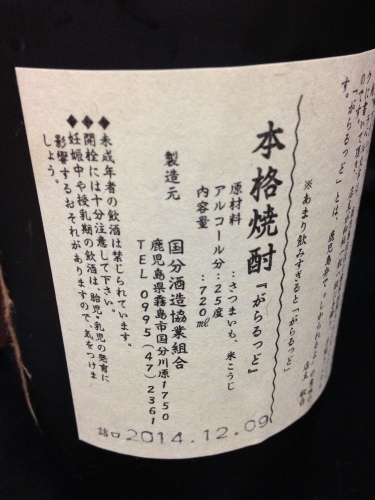 『がらるっど』とは、鹿児島弁で
※あまり飲みすぎると『がらるっど』
本格焼酎『がらるっど』
原材料：さつまいも、米こうじ
アルコール分：25度
内容量：720ml
製造元
国分酒造協業組合
鹿児島県霧島市国分川原1750
TEL 0995(47)2361
◆未成年者の飲酒は禁じられています。
◆開栓には十分注意して下さい。
◆妊娠中や授乳期の飲酒は、胎児・乳児の発育に
影響するおそれがありますので、気をつけま
しょう。
詰口 2014.12.09